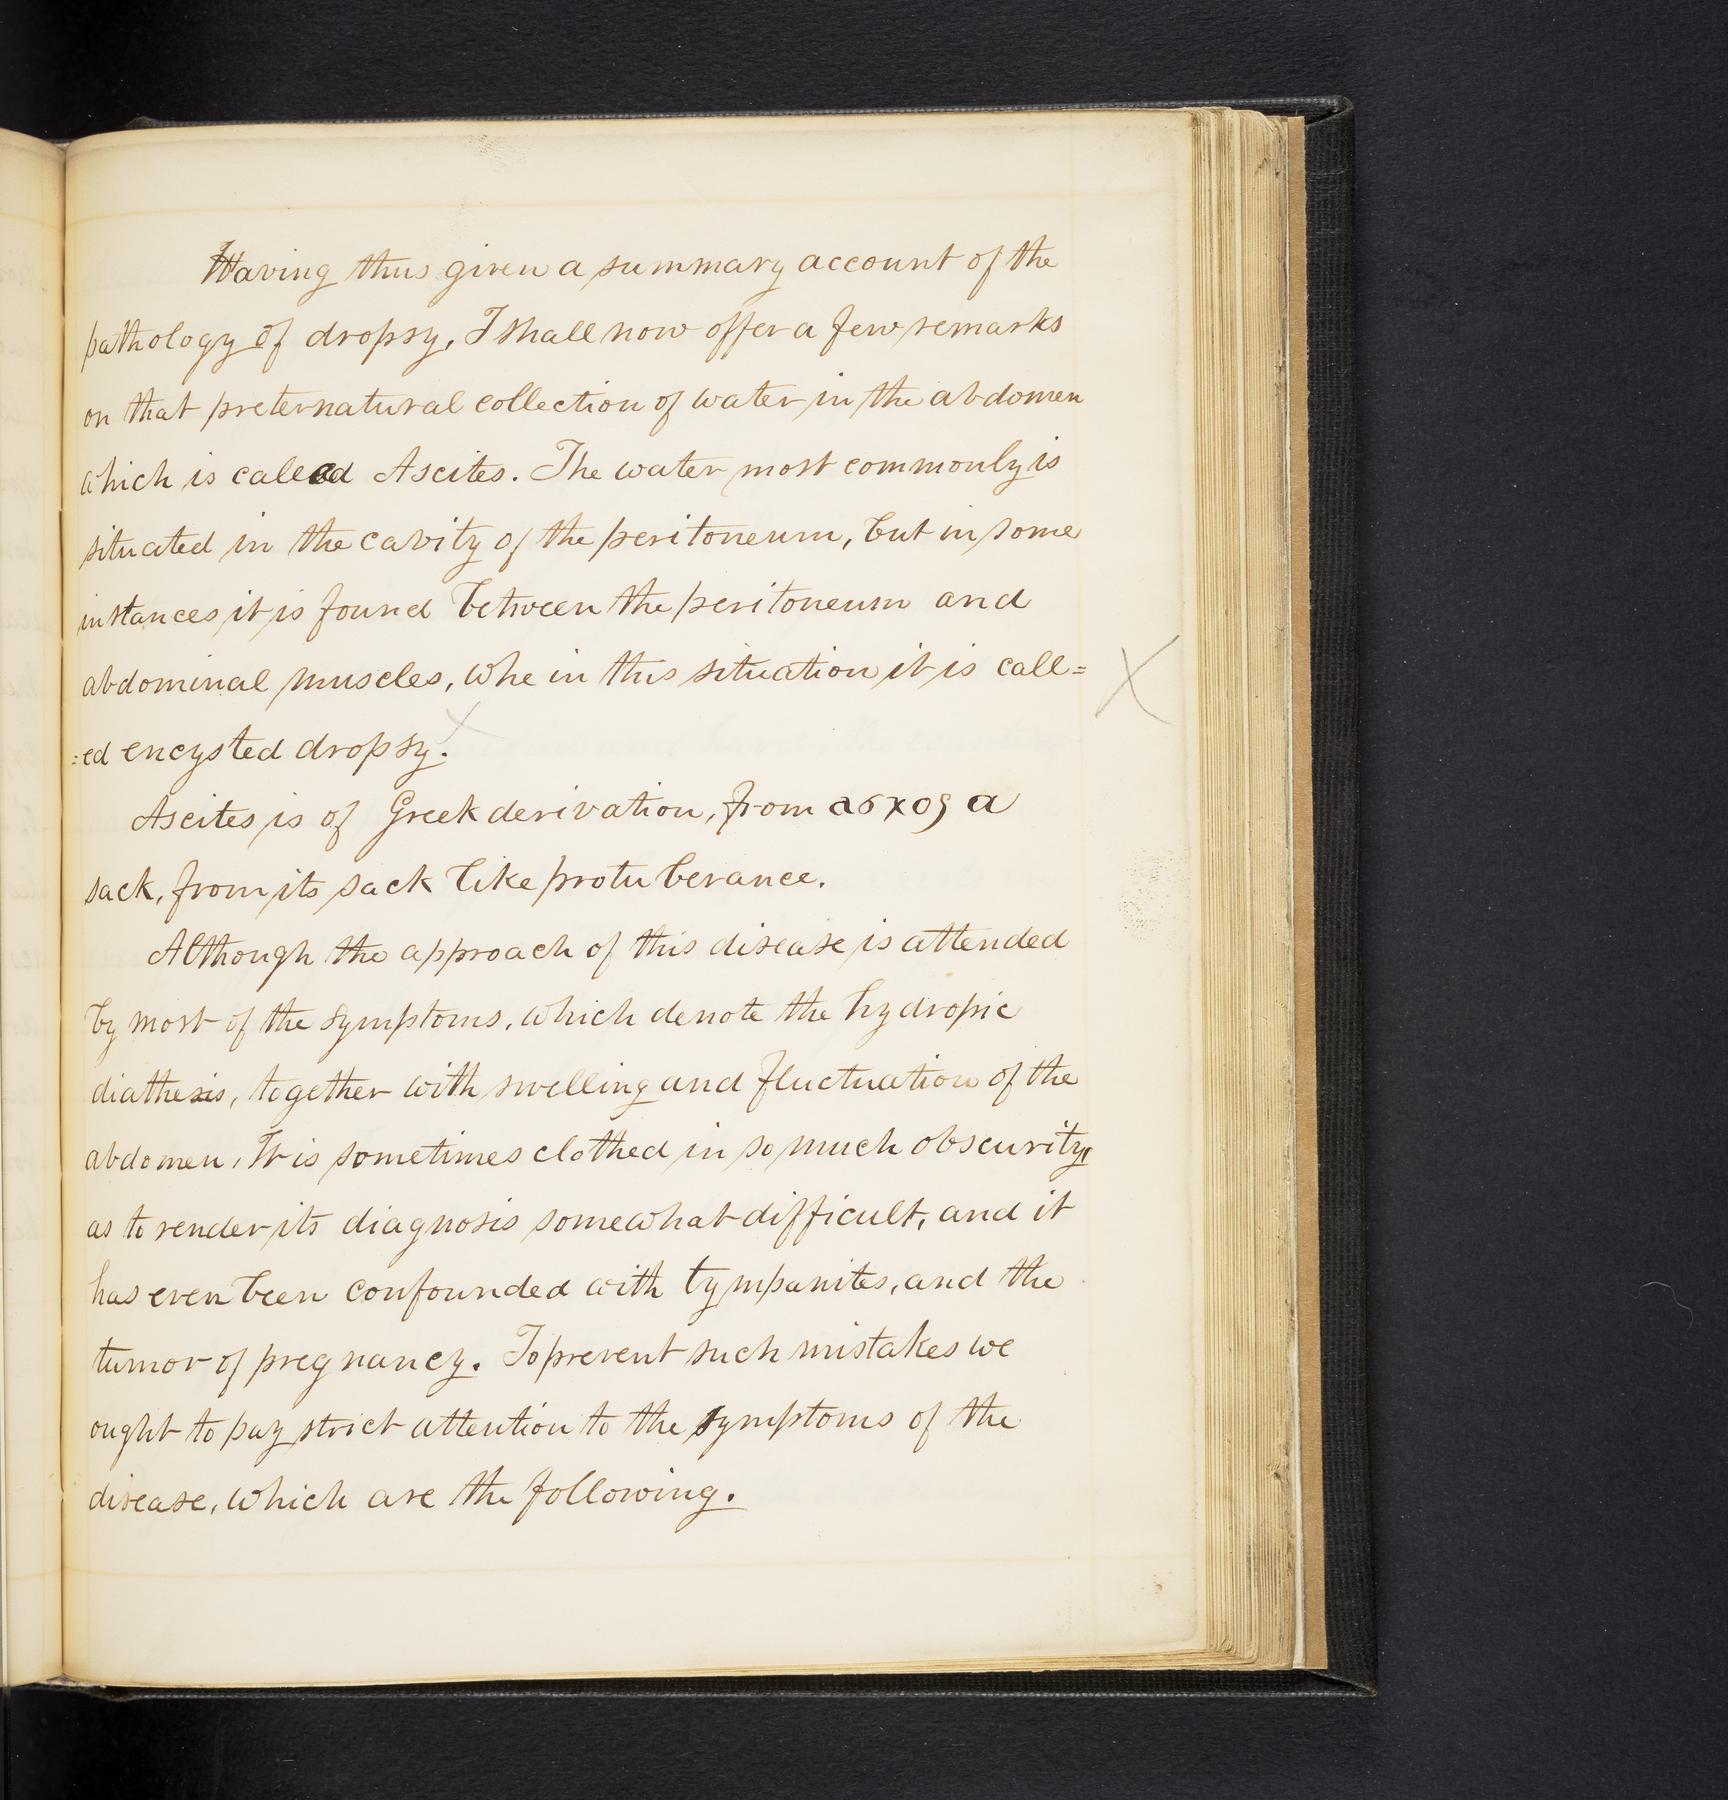 Having thus given a summary account of the
pathology of dropsy, I shall now offer a few remarks
on that preternatural collection of water in the abdomen
which is called Ascites. The water most commonly is
situated in the cavity of the peritoneum, but in some
instances it is found between the peritoneum and
abdominal muscles, whe in this situation it is call=
=ed encysted dropsy.
Ascites is of Greek derivation, from ασχος a
sack, from its sack like protuberance.
Although the approach of this disease is attended
by most of the symptoms, which denote the hydropic
diathesis, together with swelling and fluctuation of the
abdomen, It is sometimes clothed in so much obscurity,
as to render its diagnosis somewhat difficult, and it
has even been confounded with tympanites, and the
tumor of pregnancy. To prevent such mistakes we
ought to pay strict attention to the symptoms of the
disease, which are the following.